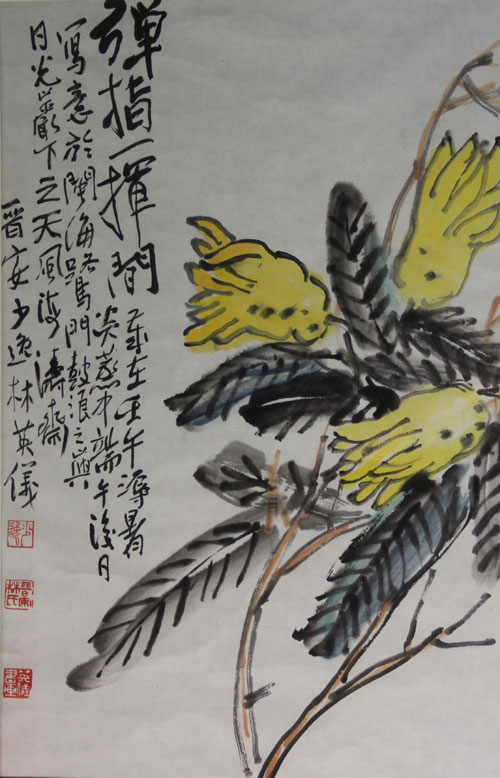 弹指一揮間
歲在壬午溽暑
炎蒸中端午後日
寫意於閩海鷺門鼓浪之嶼
日光巖下之天風海濤齋
晉安少逸林英儀